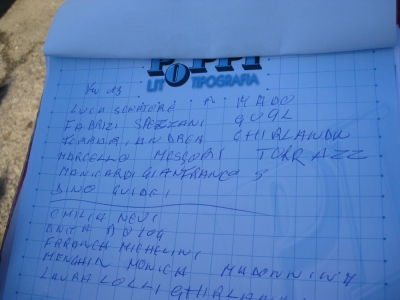 POPPI
LITOTIPOGRAFIA
KM 13
LUCA SENATORE MADO
FABRIZI SPEZZANI GUGL
ANDREA GHIRLANDA
MARCELLO TORRAZZ
MONICARDI GIANFRANCO S
DINO GUIDETI
EMILIA NEVI
ANITA
FARANCA MICHELINI
MENGHIN MONICA MADONNINA
LAURA LOLLI GHIRLAN